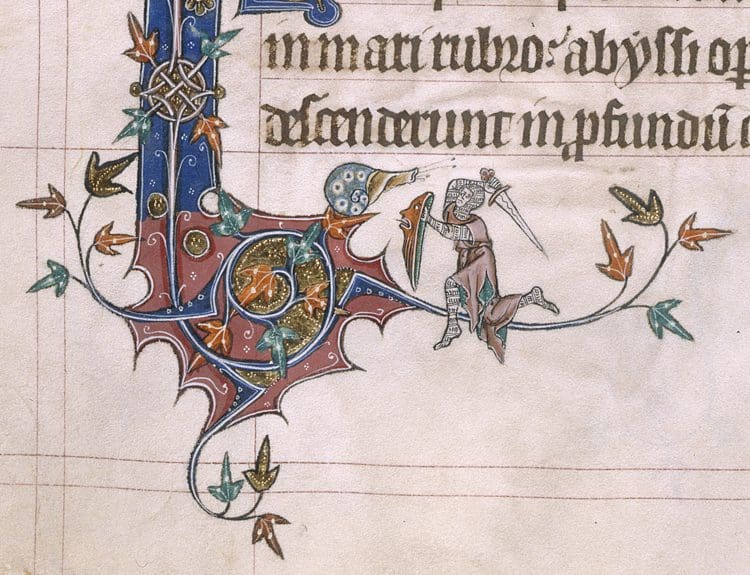 in mari rubro: abyssi op
descenderunt in ꝓfundū